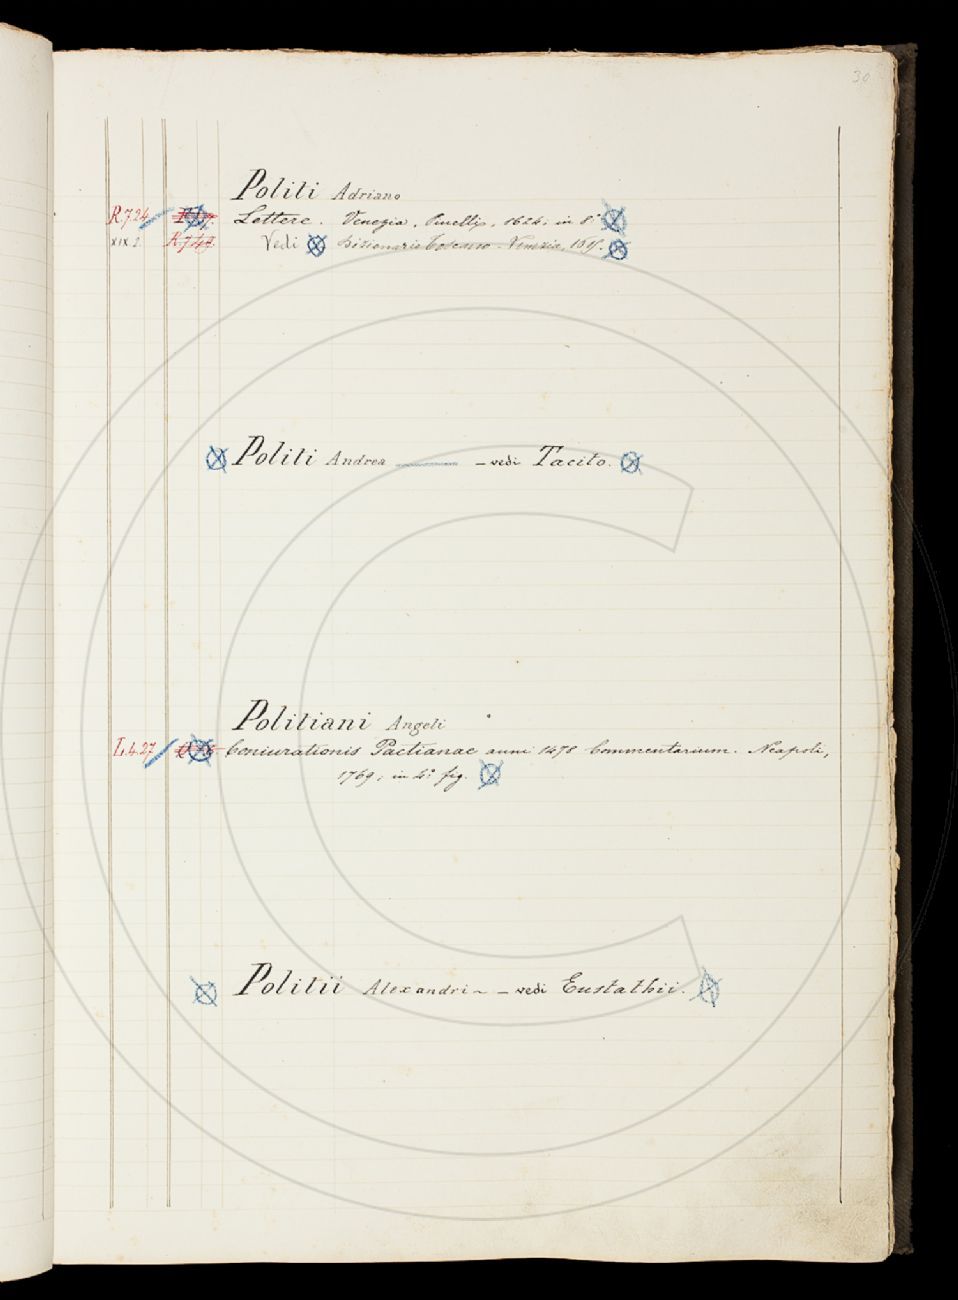 30
Politi Adriano
R.7.24 Lettere. Venezia, Pinelli, 1624. in 8°
XIX.2 R.7.49. Vedi Dizionario Toscano. Venezia,
Politi Andrea — vedi Tacito.
Politiani Angeli
L.4.27 Coniurationis Pactianae anni 1478 Commentarium. Neapoli,
1769, in 4° fig.
Politii Alexandri – vedi Eustathii.